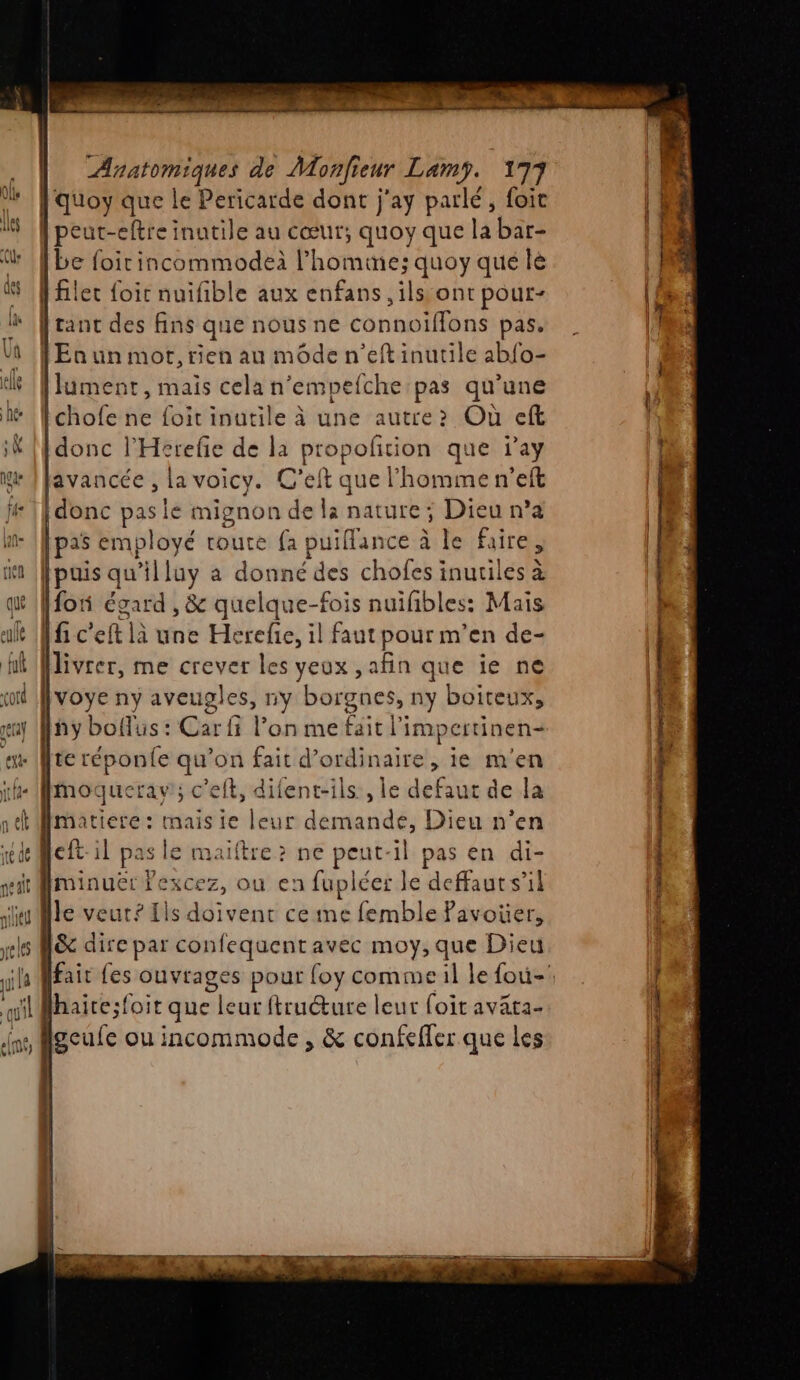 Anatomiques de Monſieur Lamy. 177
quoy que le Pericarde dont j'ay parlé, ſoit
peut-eſtre inutile au cœur; quoy que la bar-
be ſoit incommode à l'homme; quoy que le
filet ſoit nuiſible aux enfans, ils ont pour-
tant des fins que nous ne connoiſſons pas.
En un mot, rien au mõde n'eſt inutile abſo-
lument, mais cela n'empeſche pas qu'une
choſe ne ſoit inutile à une autre? Où eſt
donc l'Hereſie de la propoſition que i'ay
avancée, la voicy. C'eſt que l'homme n'eſt
donc pas le mignon de la nature; Dieu n'a
pas employé toute ſa puiſſance à le faire,
puis qu'il luy a donné des choſes inutiles à
ſon égard, & quelque-fois nuiſibles: Mais
ſi c'eſt là une Hereſie, il faut pour m'en de-
livrer, me crever les yeux, afin que ie ne
voye ny aveugles, ny borgnes, ny boiteux,
ny boſſus: Car ſi l'on me fait l'impertinen-
te réponſe qu'on fait d'ordinaire, ie m'en
moqueray; c'eſt, diſent-ils, le defaut de la
matiere: mais ie leur demande, Dieu n'en
eſt-il pas le maiſtre? ne peut-il pas en di-
minuër l'excez, ou en ſupléer le deffaut s'il
le veut? Ils doivent ce me ſemble l'avoüer,
& dire par conſequent avec moy, que Dieu
fait ſes ouvrages pour ſoy comme il le ſou-
haite; ſoit que leur ſtructure leur ſoit avãta-
geuſe ou incommode, & confeſſer que les